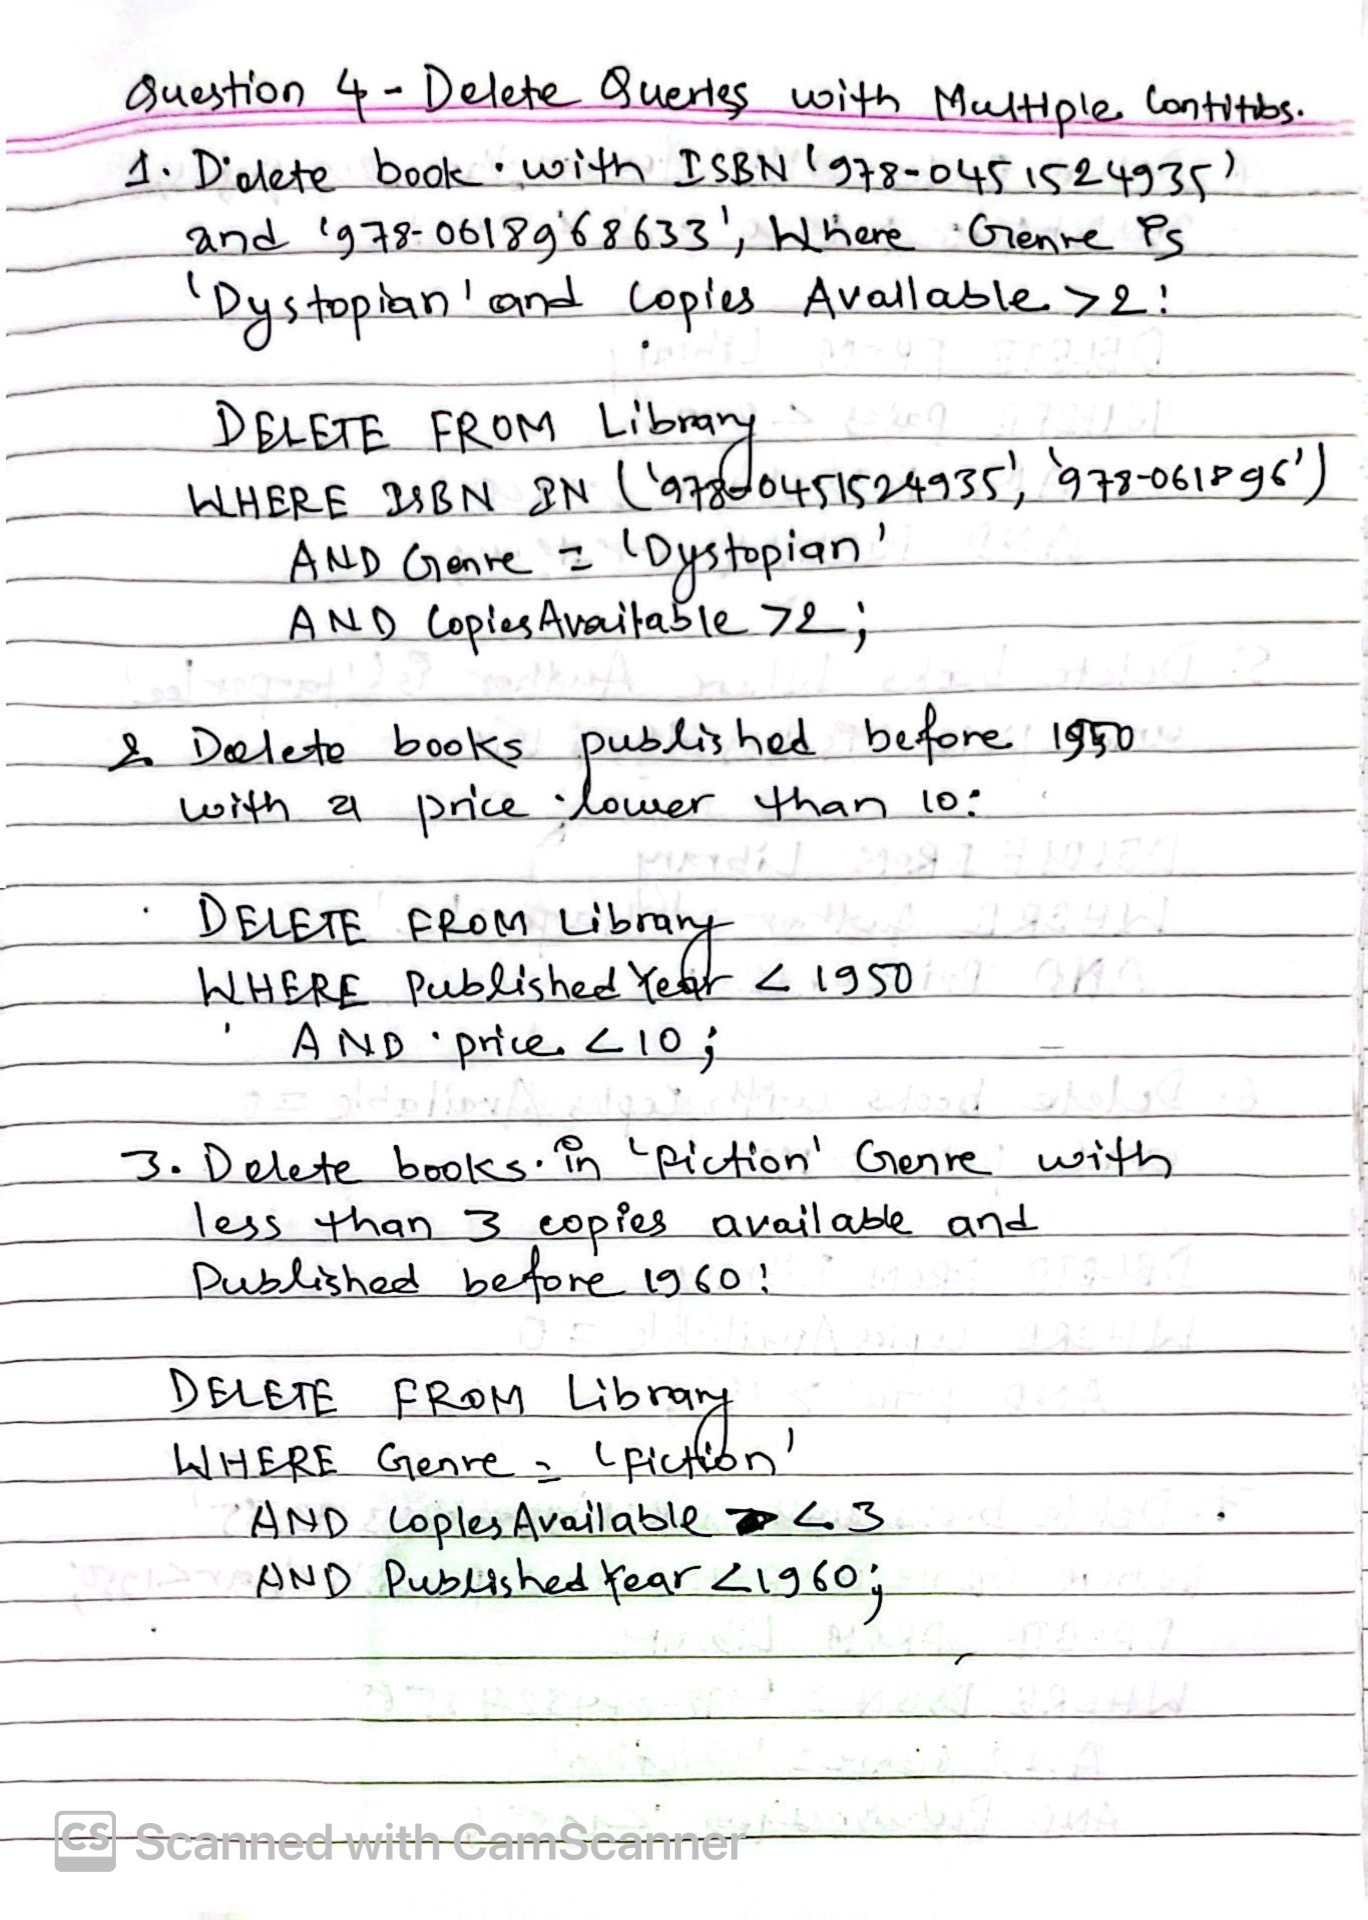 Question 4 - Delete Queries with Multiple
1. Delete book with ISBN '978-0451524935'
and '978-0618968633', Where Genre is
'Dystopian' and Copies Available >2:
DELETE FROM Library
WHERE ISBN IN ('978-0451524935', '978-061896')
AND Genre = 'Dystopian'
AND CopiesAvailable >2;
2 Delete books published before 1950
with a price lower than 10:
DELETE FROM Library
WHERE Published Year < 1950
AND price <10;
3. Delete books in 'Fiction' Genre with
less than 3 copies available and
Published before 1960:
DELETE FROM Library
WHERE Genre = 'Fiction'
AND Copies Available < 3
AND Published Year <1960;
CS Scanned with CamScanner